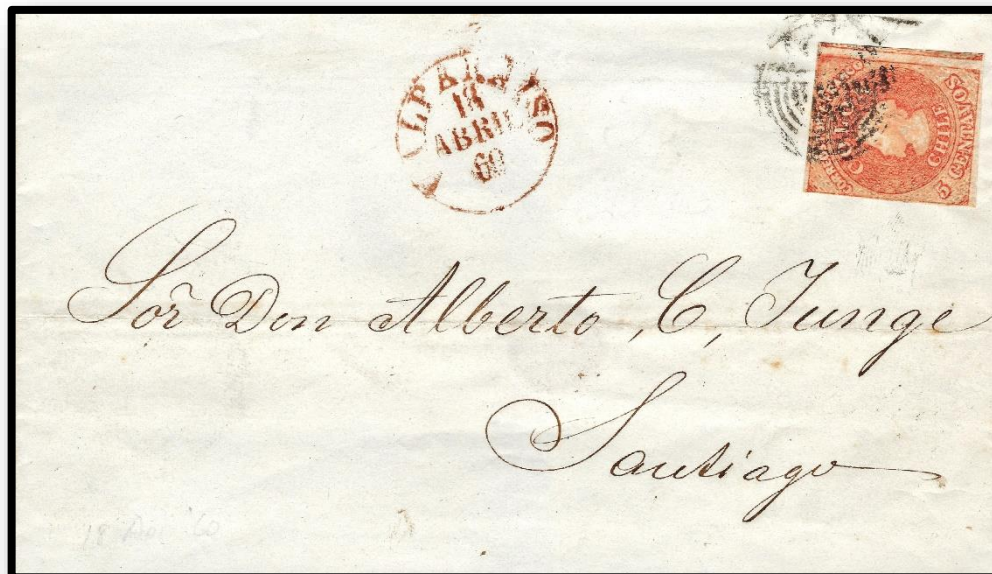 VALPARAISO
18
ABRIL
60
COLON CHILE
5 CENTAVOS
Sor̃ Don Alberto, C, Junge
Santiago